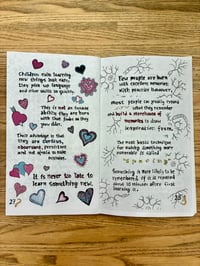 Children enjoy learning
new things just cuz,
they pick up language
and other skills so quickly.
They is not an innate
ability they are born
with that fades as they
get older.
Their advantage is that
they are curious,
observant, persistent
and not afraid to make
mistakes.
It is never too late to
learn something new.
27
Few people are born
with excellent memories.
With practice however,
most people can greatly expand
what they remember
and build a storehouse of
memories to draw
inspiration from.
The most basic technique
for making something more
memorable is called
"Spacing"
Something is more likely to be
remembered if it is reviewed
about 10 minutes after first
learning it.
28